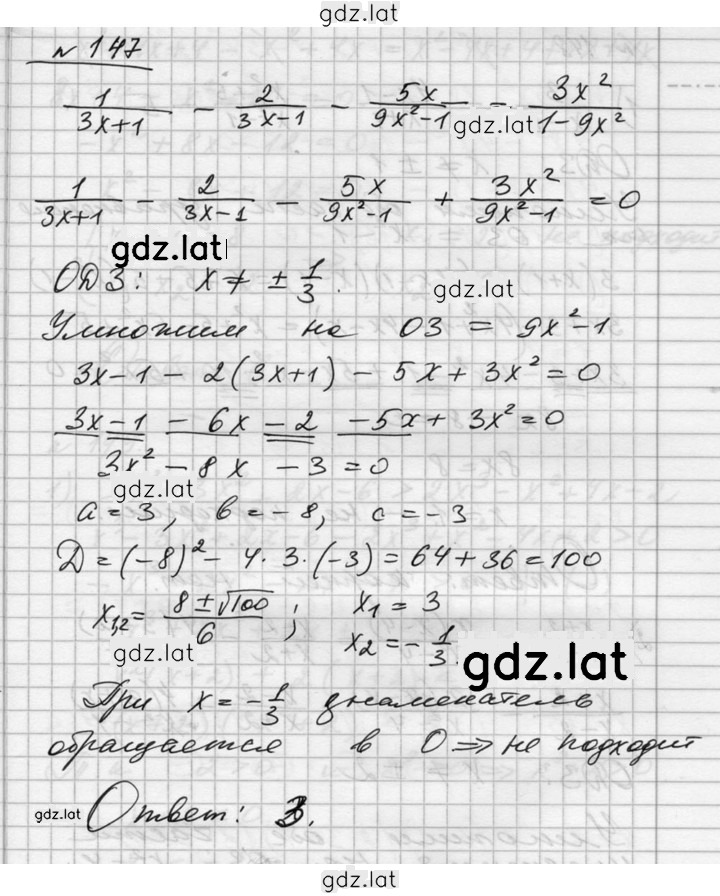 gdz.lat
№ 147
1/(3x+1) - 2/(3x-1) - 5x/(9x²-1) - 3x²/(1-9x²)
gdz.lat
1/(3x+1) - 2/(3x-1) - 5x/(9x²-1) + 3x²/(9x²-1) = 0
gdz.lat
ОДЗ: x ≠ ± 1/3.
gdz.lat
Умножим на ОЗ = 9x²-1
3x-1 - 2(3x+1) - 5x + 3x² = 0
3x-1 - 6x-2 -5x + 3x² = 0
3x² - 8x - 3 = 0
gdz.lat
a = 3, b = -8, c = -3
Д = (-8)² - 4·3·(-3) = 64+36 = 100
x1,2 = (8±√100)/6 ; x1 = 3
x2 = -1/3.
gdz.lat
gdz.lat
При x = -1/3 знаменатель
обращается в 0 ⇒ не подходит
gdz.lat
Ответ: 3.
gdz.lat